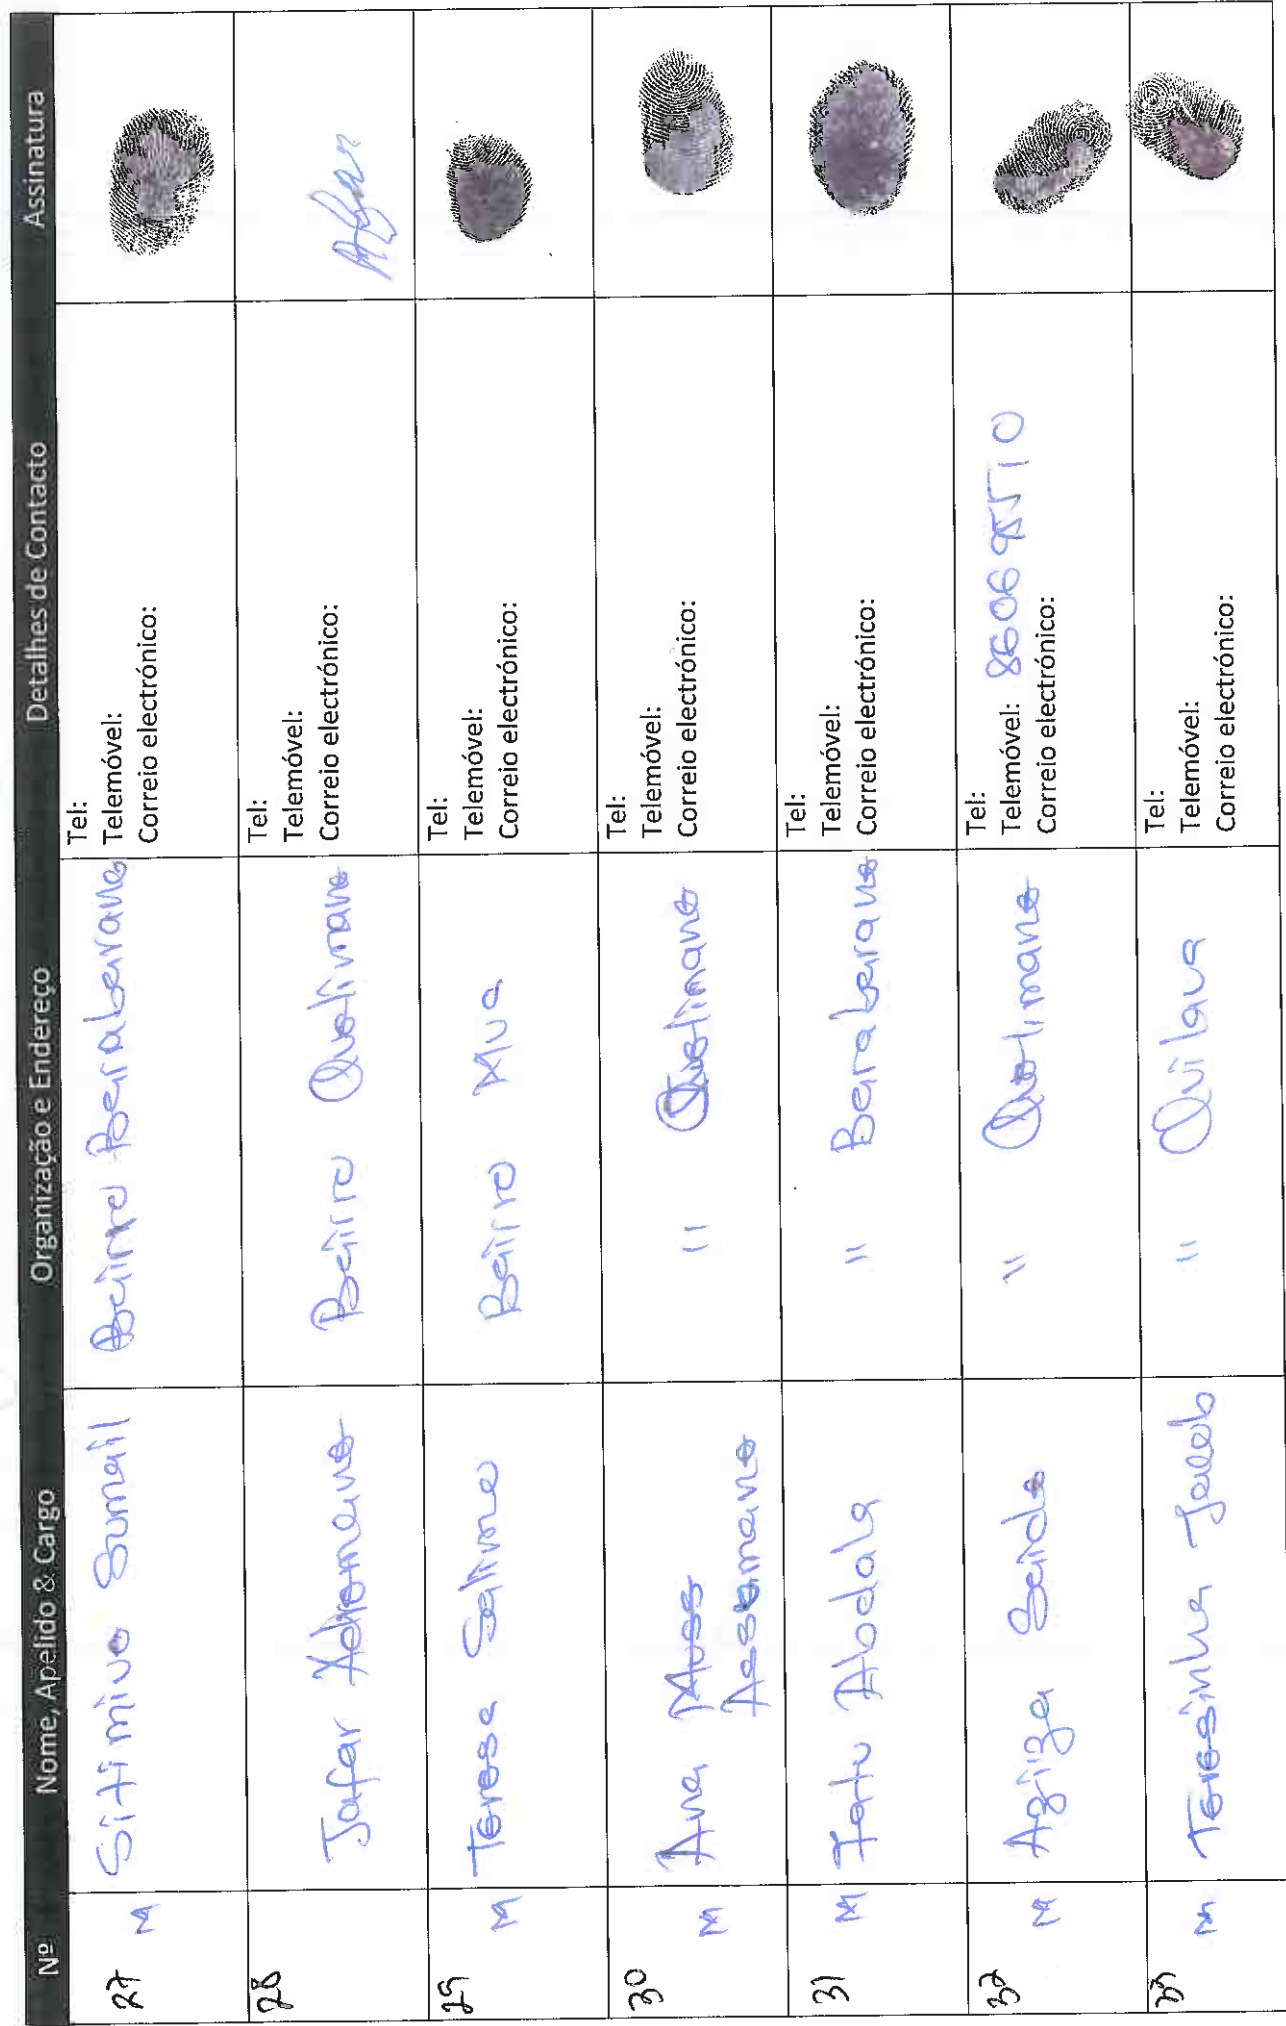 Nº Nome, Apelido & Cargo Organização e Endereço Detalhes de Contacto Assinatura
27 M Sitimivo Sumail Bairro Barabarane Tel:
Telemóvel:
Correio electrónico:
28 Jafar Adremane Bairro Quelimane Tel:
Telemóvel:
Correio electrónico:
29 M Teresa Salime Bairro Mua Tel:
Telemóvel:
Correio electrónico:
30 M Ana Muss Assomane " Quelimane Tel:
Telemóvel:
Correio electrónico:
31 M Fatu Abdala " Barabarane Tel:
Telemóvel:
Correio electrónico:
32 M Agiza Saide " Quelimane Tel:
Telemóvel: 860695510
Correio electrónico:
33 M Teresinha " Quilaua Tel:
Telemóvel:
Correio electrónico: